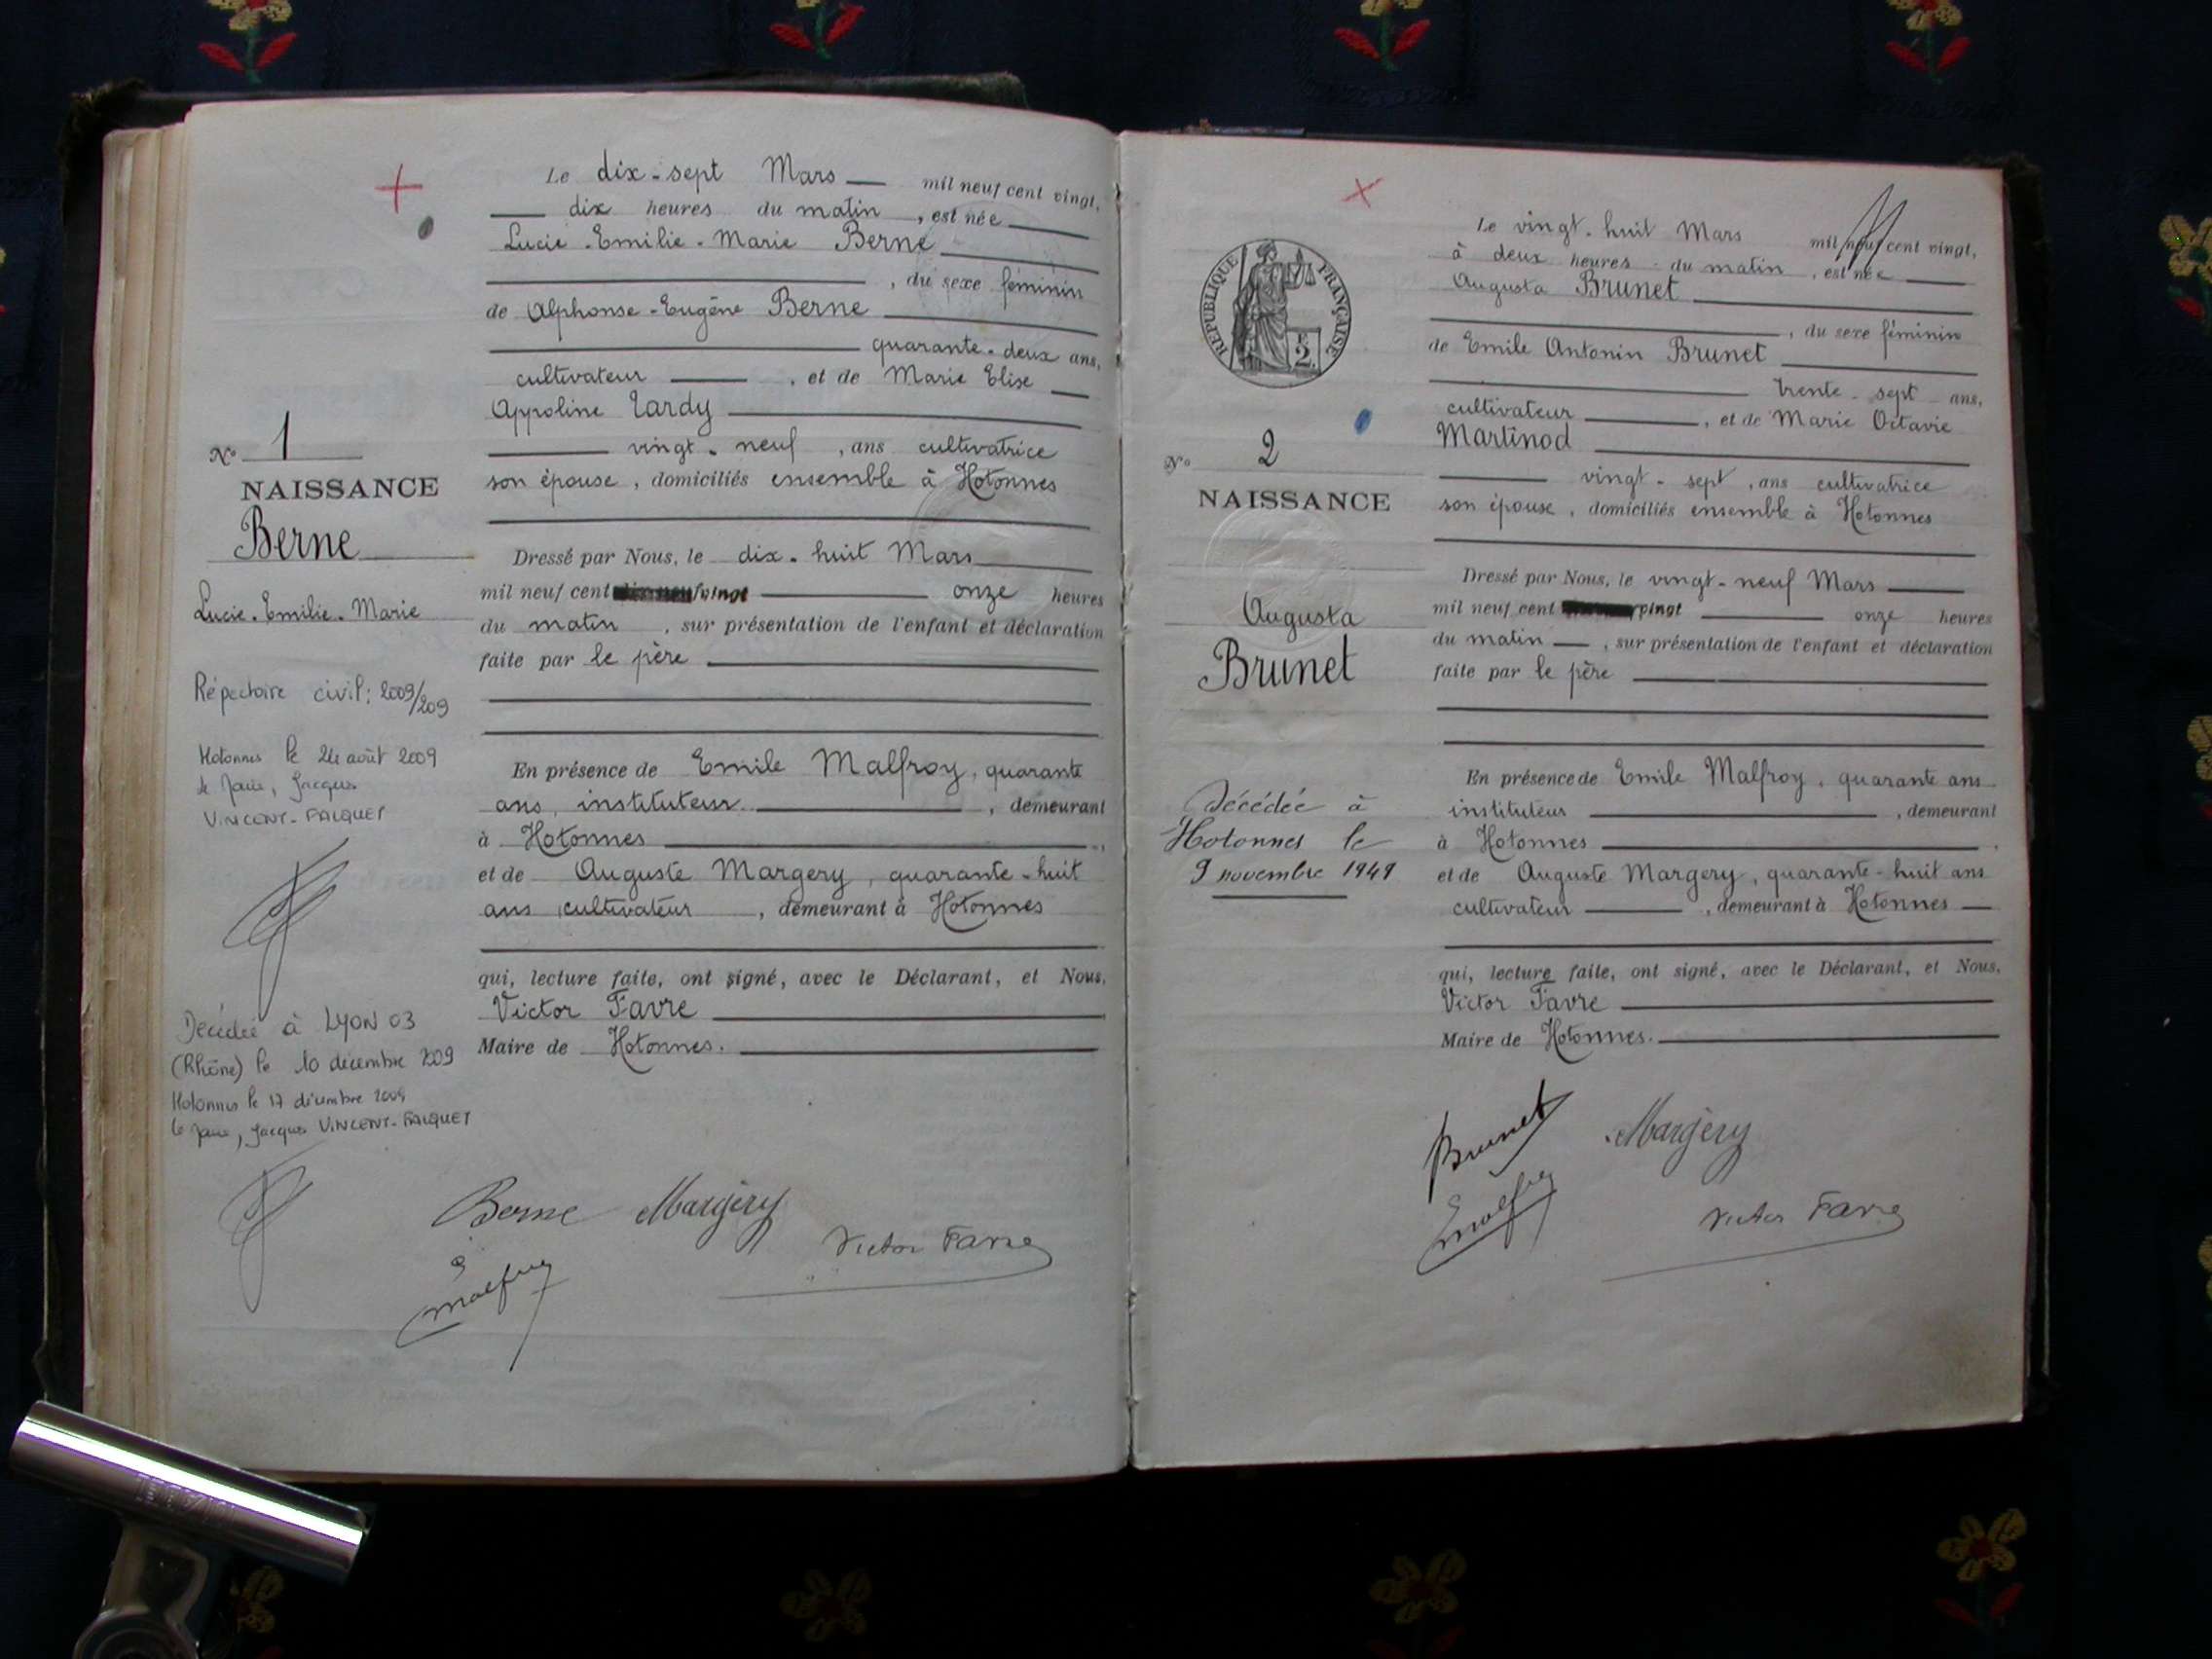 Le dix-sept Mars mil neuf cent vingt,
dix heures du matin, est née
Lucie-Emilie-Marie Berne
, du sexe féminin
de Alphonse-Eugène Berne
quarante-deux ans,
cultivateur, et de Marie Elise
Appoline Tardy
vingt-neuf, ans cultivatrice
son épouse, domiciliés ensemble à Hotonnes
Dressé par Nous, le dix-huit Mars
mil neuf cent vingt onze heures
du matin, sur présentation de l'enfant et déclaration
faite par le père
En présence de Emile Malfroy, quarante
ans, instituteur, demeurant
à Hotonnes,
et de Auguste Margery, quarante-huit
ans cultivateur, demeurant à Hotonnes
qui, lecture faite, ont signé, avec le Déclarant, et Nous,
Victor Favre
Maire de Hotonnes.
Berne Margery
E Malfroy
Victor Favre
No 1
NAISSANCE
Berne
Lucie-Emilie-Marie
Répertoire civil: 2009/209
Hotonnes le 24 août 2009
le Maire, Jacques
VINCENT-FALQUET
Décédée à LYON 03
(Rhône) le 10 décembre 2009
Hotonnes le 17 décembre 2009
le Maire, Jacques VINCENT-FALQUET
REPUBLIQUE FRANÇAISE
2
No 2
NAISSANCE
Augusta
Brunet
Décédée à
Hotonnes le
9 novembre 1949
Le vingt-huit Mars mil neuf cent vingt,
à deux heures du matin, est née
Augusta Brunet
, du sexe féminin
de Emile Antonin Brunet
trente-sept ans,
cultivateur, et de Marie Octavie
Martinod
vingt-sept, ans cultivatrice
son épouse, domiciliés ensemble à Hotonnes
Dressé par Nous, le vingt-neuf Mars
mil neuf cent vingt onze heures
du matin, sur présentation de l'enfant et déclaration
faite par le père
En présence de Emile Malfroy, quarante ans
instituteur, demeurant
à Hotonnes,
et de Auguste Margery, quarante-huit ans
cultivateur, demeurant à Hotonnes
qui, lecture faite, ont signé, avec le Déclarant, et Nous,
Victor Favre
Maire de Hotonnes.
Brunet Margery
E Malfroy
Victor Favre